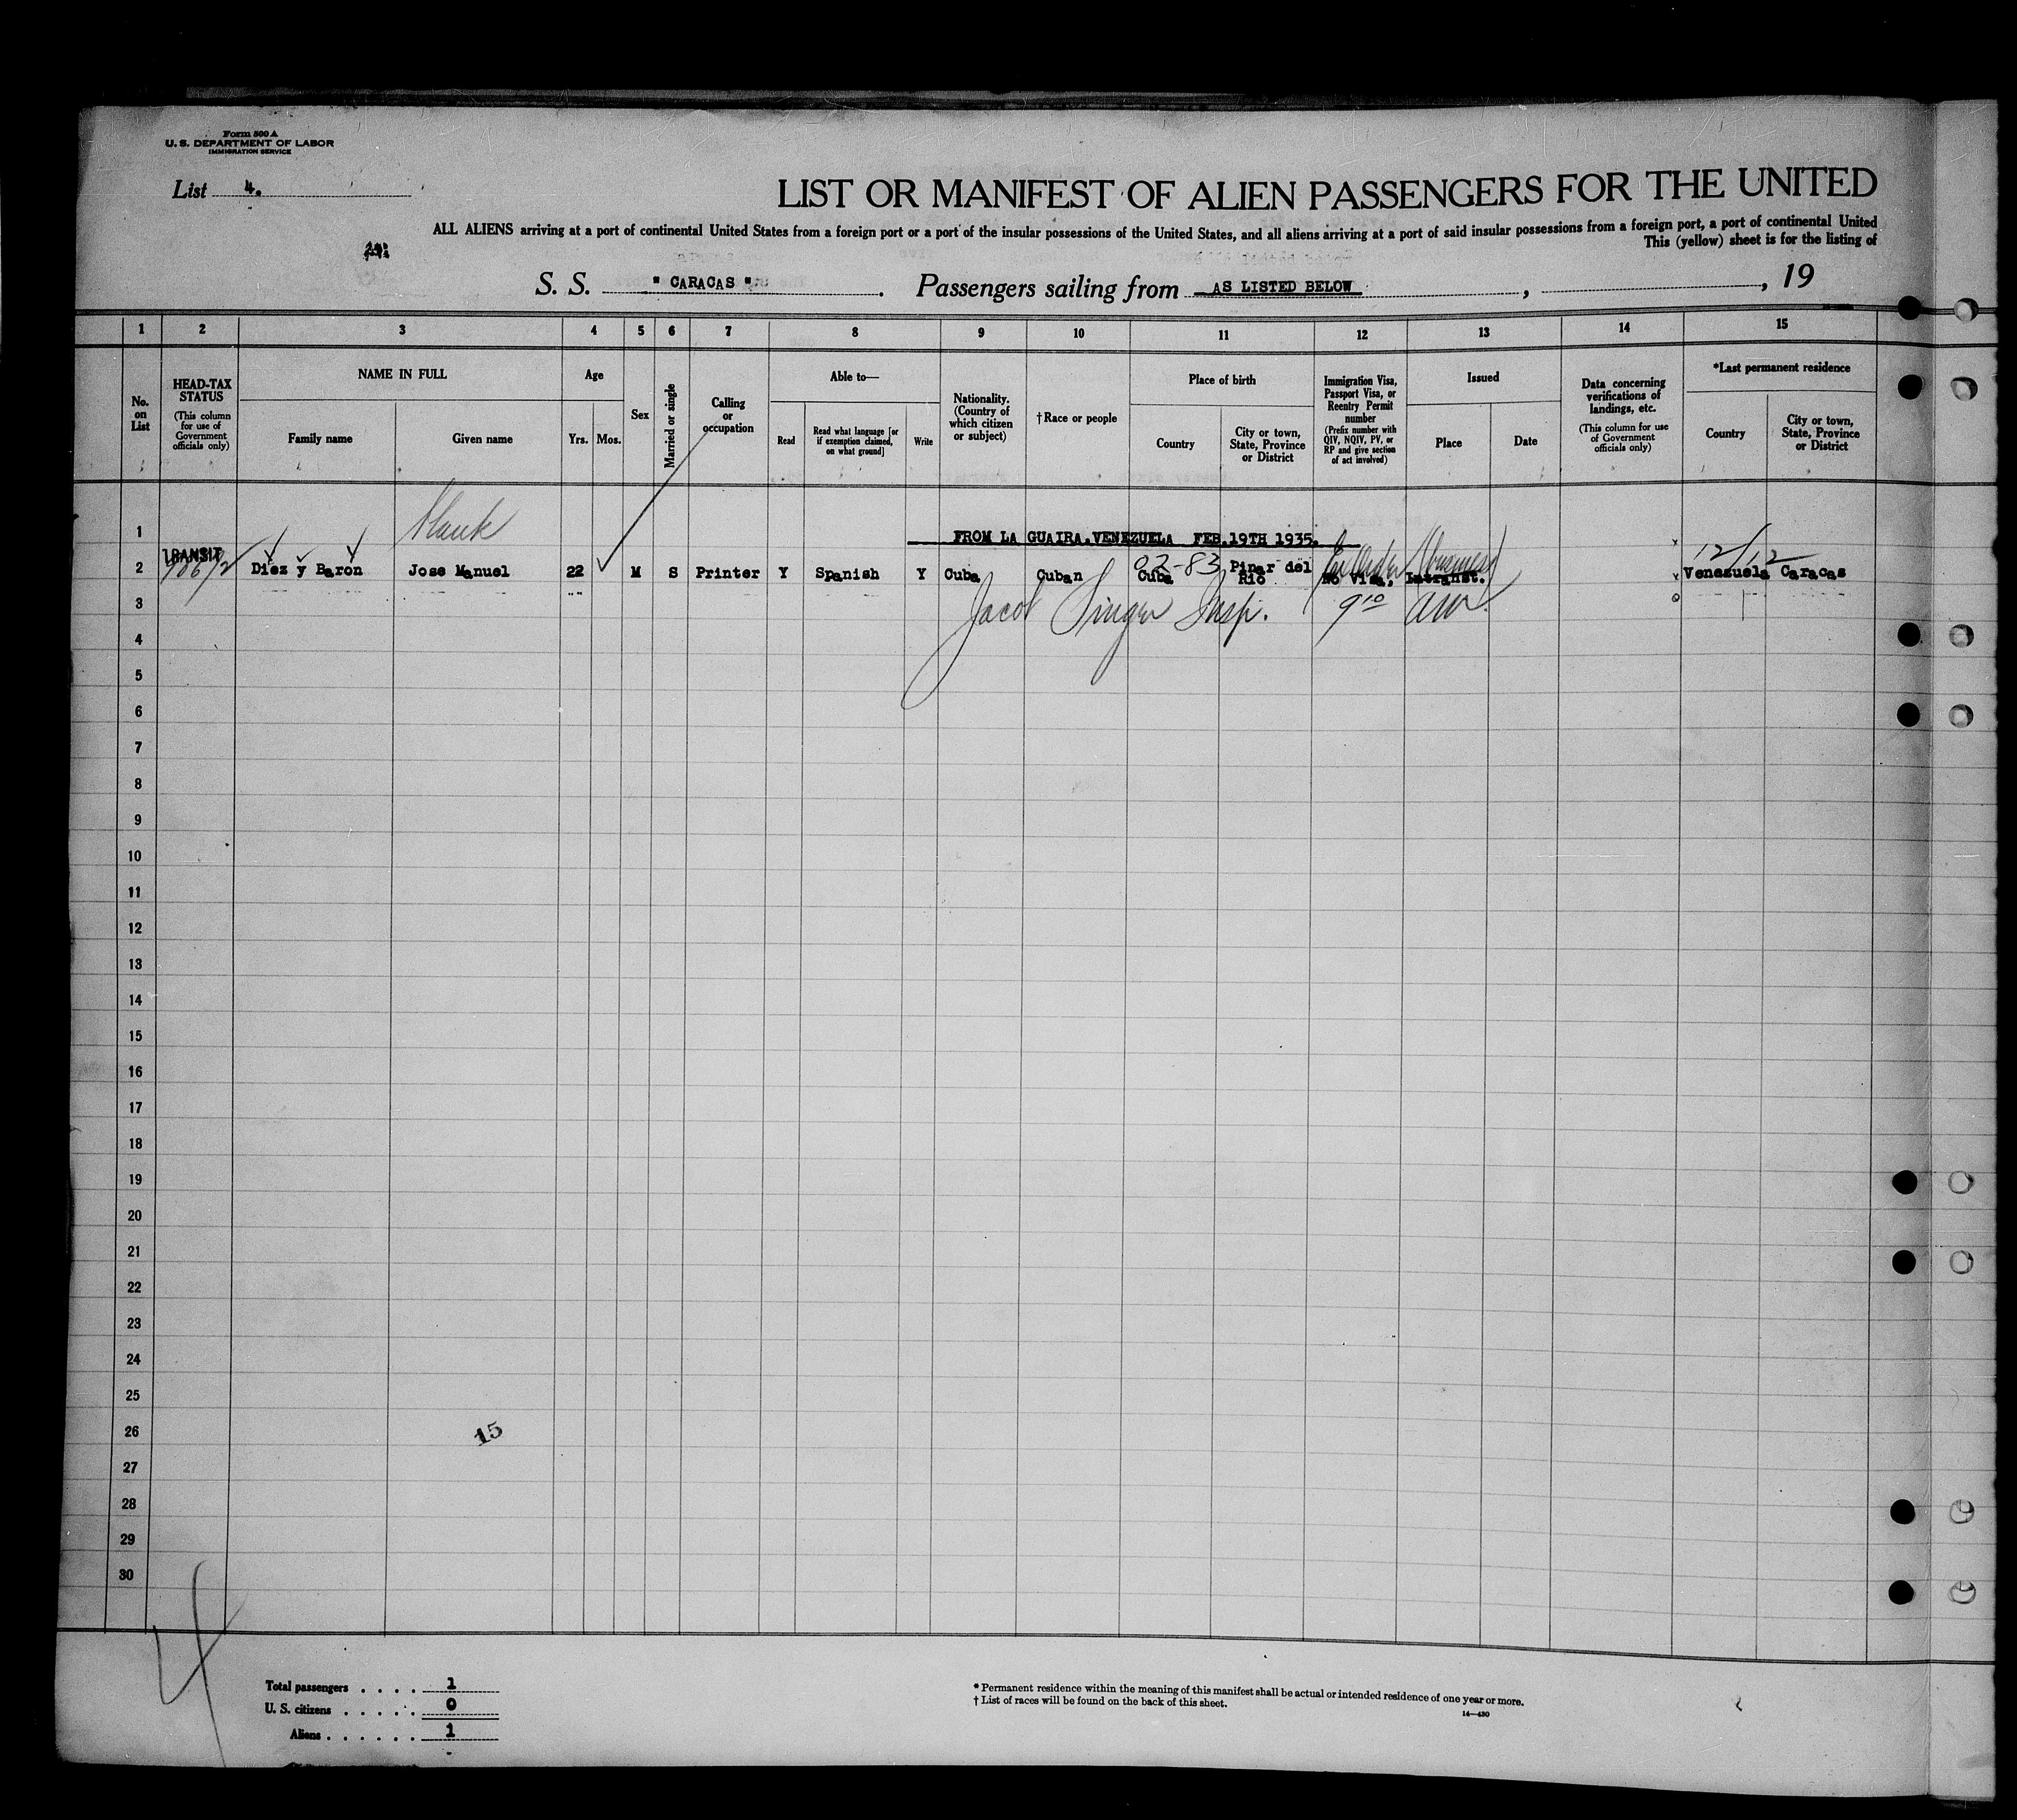 Form 500 A
U. S. DEPARTMENT OF LABOR
IMMIGRATION SERVICE
List 4.
LIST OR MANIFEST OF ALIEN PASSENGERS FOR THE UNITED
ALL ALIENS arriving at a port of continental United States from a foreign port or a port of the insular possessions of the United States, and all aliens arriving at a port of said insular possessions from a foreign port, a port of continental United
This (yellow) sheet is for the listing of
S. S. " CARACAS " . Passengers sailing from AS LISTED BELOW , , 19
1 2 3 4 5 6 7 8 9 10 11 12 13 14 15
No. on List
HEAD-TAX STATUS
(This column for use of Government officials only)
NAME IN FULL
Family name
Given name
Age
Yrs. Mos.
Sex
Married or single
Calling or occupation
Able to—
Read
Read what language [or if exemption claimed, on what ground]
Write
Nationality. (Country of which citizen or subject)
†Race or people
Place of birth
Country
City or town, State, Province or District
Immigration Visa, Passport Visa, or Reentry Permit number
(Prefix number with QIV, NQIV, PV, or RP and give section of act involved)
Issued
Place
Date
Data concerning verifications of landings, etc.
(This column for use of Government officials only)
*Last permanent residence
Country
City or town, State, Province or District
1 FROM LA GUAIRA.VENEZUELA FEB.19TH 1935.
TRANSIT 02-83 12/12
2 Diez y Baron Jose Manuel 22 M S Printer Y Spanish Y Cuba Cuban Cuba Pinar del Rio No Visa, Intranst. Venezuela Caracas
3 Jacob Singer Insp. 9 10 AM
4
5
6
7
8
9
10
11
12
13
14
15
16
17
18
19
20
21
22
23
24
25
26 15
27
28
29
30
4
Total passengers . . . . 1
U. S. citizens . . . . . 0
Aliens . . . . . . 1
* Permanent residence within the meaning of this manifest shall be actual or intended residence of one year or more.
† List of races will be found on the back of this sheet.
14—430